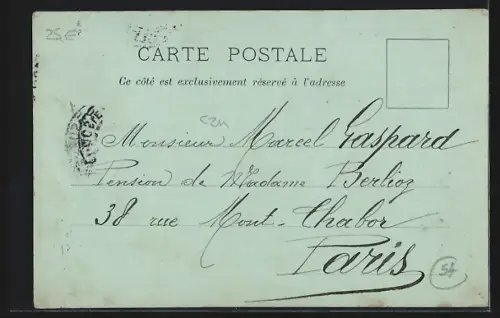 25 E
CARTE POSTALE
Ce côté est exclusivement réservé à l'adresse
Monsieur Marcel Gaspard
Pension de Madame Berlioz
38 rue Mont-Thabor
Paris
54